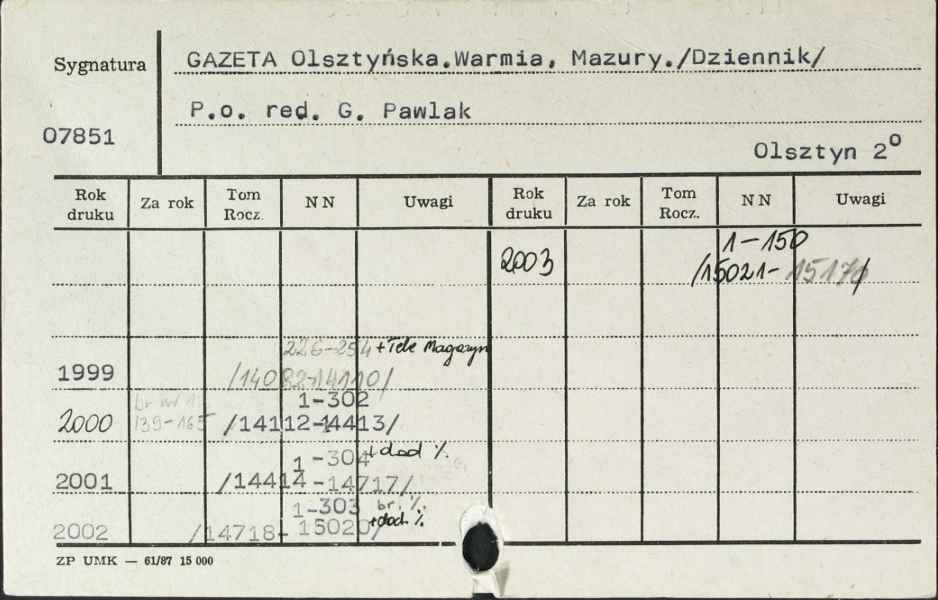 Sygnatura
07851
GAZETA Olsztyńska.Warmia, Mazury./Dziennik/
P.o. red. G. Pawlak
Olsztyn 2°
Rok druku Za rok Tom Rocz. NN Uwagi Rok druku Za rok Tom Rocz. NN Uwagi
2003 1-150
/15021-15170/
226-254 +Tele Magazyn
1999 /14082-14110/
1-302
2000 139-165 /14112-14413/
1-304 +dod %.
2001 /14414-14717/
1-303 br. %.
2002 /14718-15020/ +dod. %
ZP UMK — 61/87 15 000